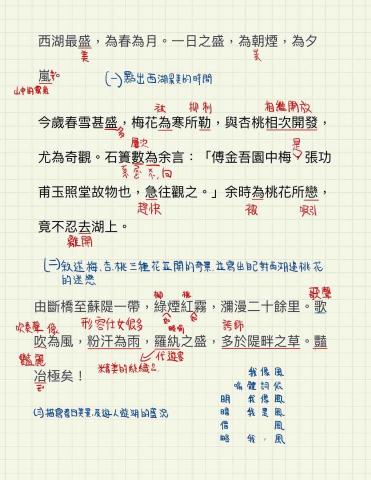 西湖最盛,為春為月。一日之盛,為朝煙,為夕
美
美
嵐。
山中的霧氣
(一)點出西湖最美的時間
被
抑制
相繼開放
今歲春雪甚盛,梅花為寒所勒,與杏桃相次開發,
多
屢次
是
尤為奇觀。石簣數為余言:「傅金吾園中梅,張功
甫玉照堂故物也,急往觀之。」余時為桃花所戀,
趕快
被
吸引
竟不忍去湖上。
離開
(二)敘述梅、杏、桃三種花並開的奇景,並寫出自己對西湖邊桃花
的迷戀
柳
桃
歌聲
由斷橋至蘇隄一帶,綠煙紅霧,瀰漫二十餘里。歌
吹奏聲
像
形容仕女很多
吹為風,粉汗為雨,羅紈之盛,多於隄畔之草。豔
豔麗
代遊客
精美的絲織品
冶極矣!
(三)描寫春日美景及遊人遊湖的盛況
我像風
喻體詞依
明 我像風
暗 我是風
借 風
略 我,風